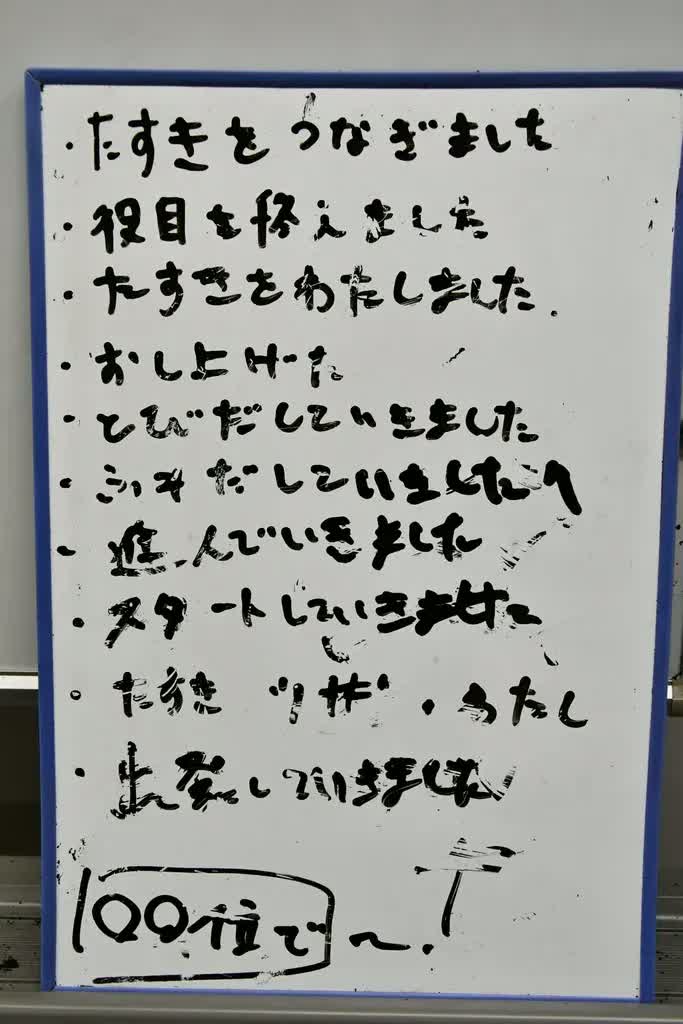 ・たすきをつなぎました
・役目を終えました
・たすきをわたしました.
・おし上げた
・とびだしていきました
・ふみだしていました
・進んでいきました
・スタートしていきました
・たすき ・わたし
・出発していきました
100位で〜.